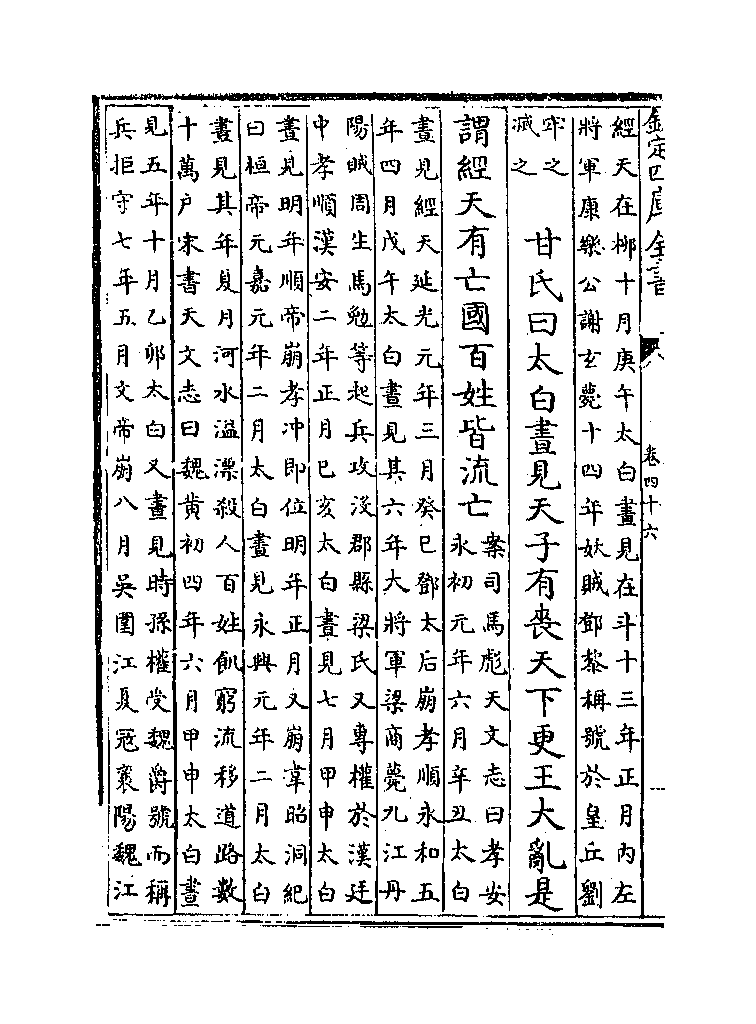 欽定四庫全書
卷四十六
經天在柳十月庚午太白晝見在斗十三年正月內左
將軍康樂公謝玄薨十四年妖賊鄧黎稱號於皇丘劉
牢之
滅之
甘氏曰太白晝見天子有喪天下更王大亂是
謂經天有亡國百姓皆流亡
案司馬彪天文志曰孝安
永初元年六月辛丑太白
晝見經天延光元年三月癸巳鄧太后崩孝順永和五
年四月戊午太白晝見其六年大將軍梁商薨九江丹
陽賊周生馬勉等起兵攻沒郡縣梁氏又專權於漢廷
中孝順漢安二年正月巳亥太白晝見七月甲申太白
晝見明年順帝崩孝冲即位明年正月又崩韋昭洞紀
曰桓帝元嘉元年二月太白晝見永興元年二月太白
晝見其年夏月河水溢漂殺人百姓飢窮流移道路數
十萬户宋書天文志曰魏黃初四年六月甲申太白晝
見五年十月乙卯太白又晝見時孫權受魏爵號而稱
兵拒守七年五月文帝崩八月吳圍江夏寇襄陽魏江